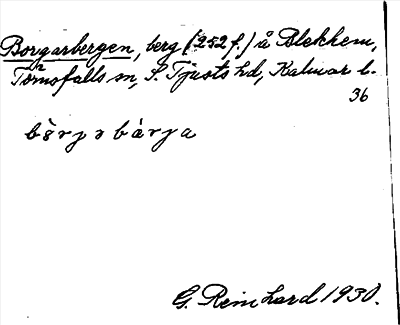 Borgarbergen, berg (252 f.) å Blekhem,
Törnsfalls sn, S. Tjusts hd, Kalmar l.
36
bòrjɘbárja
G. Reinhard 1930.